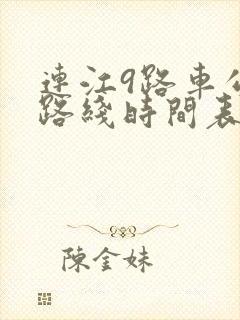 連江9路車公
路綫時間表
陳金妹